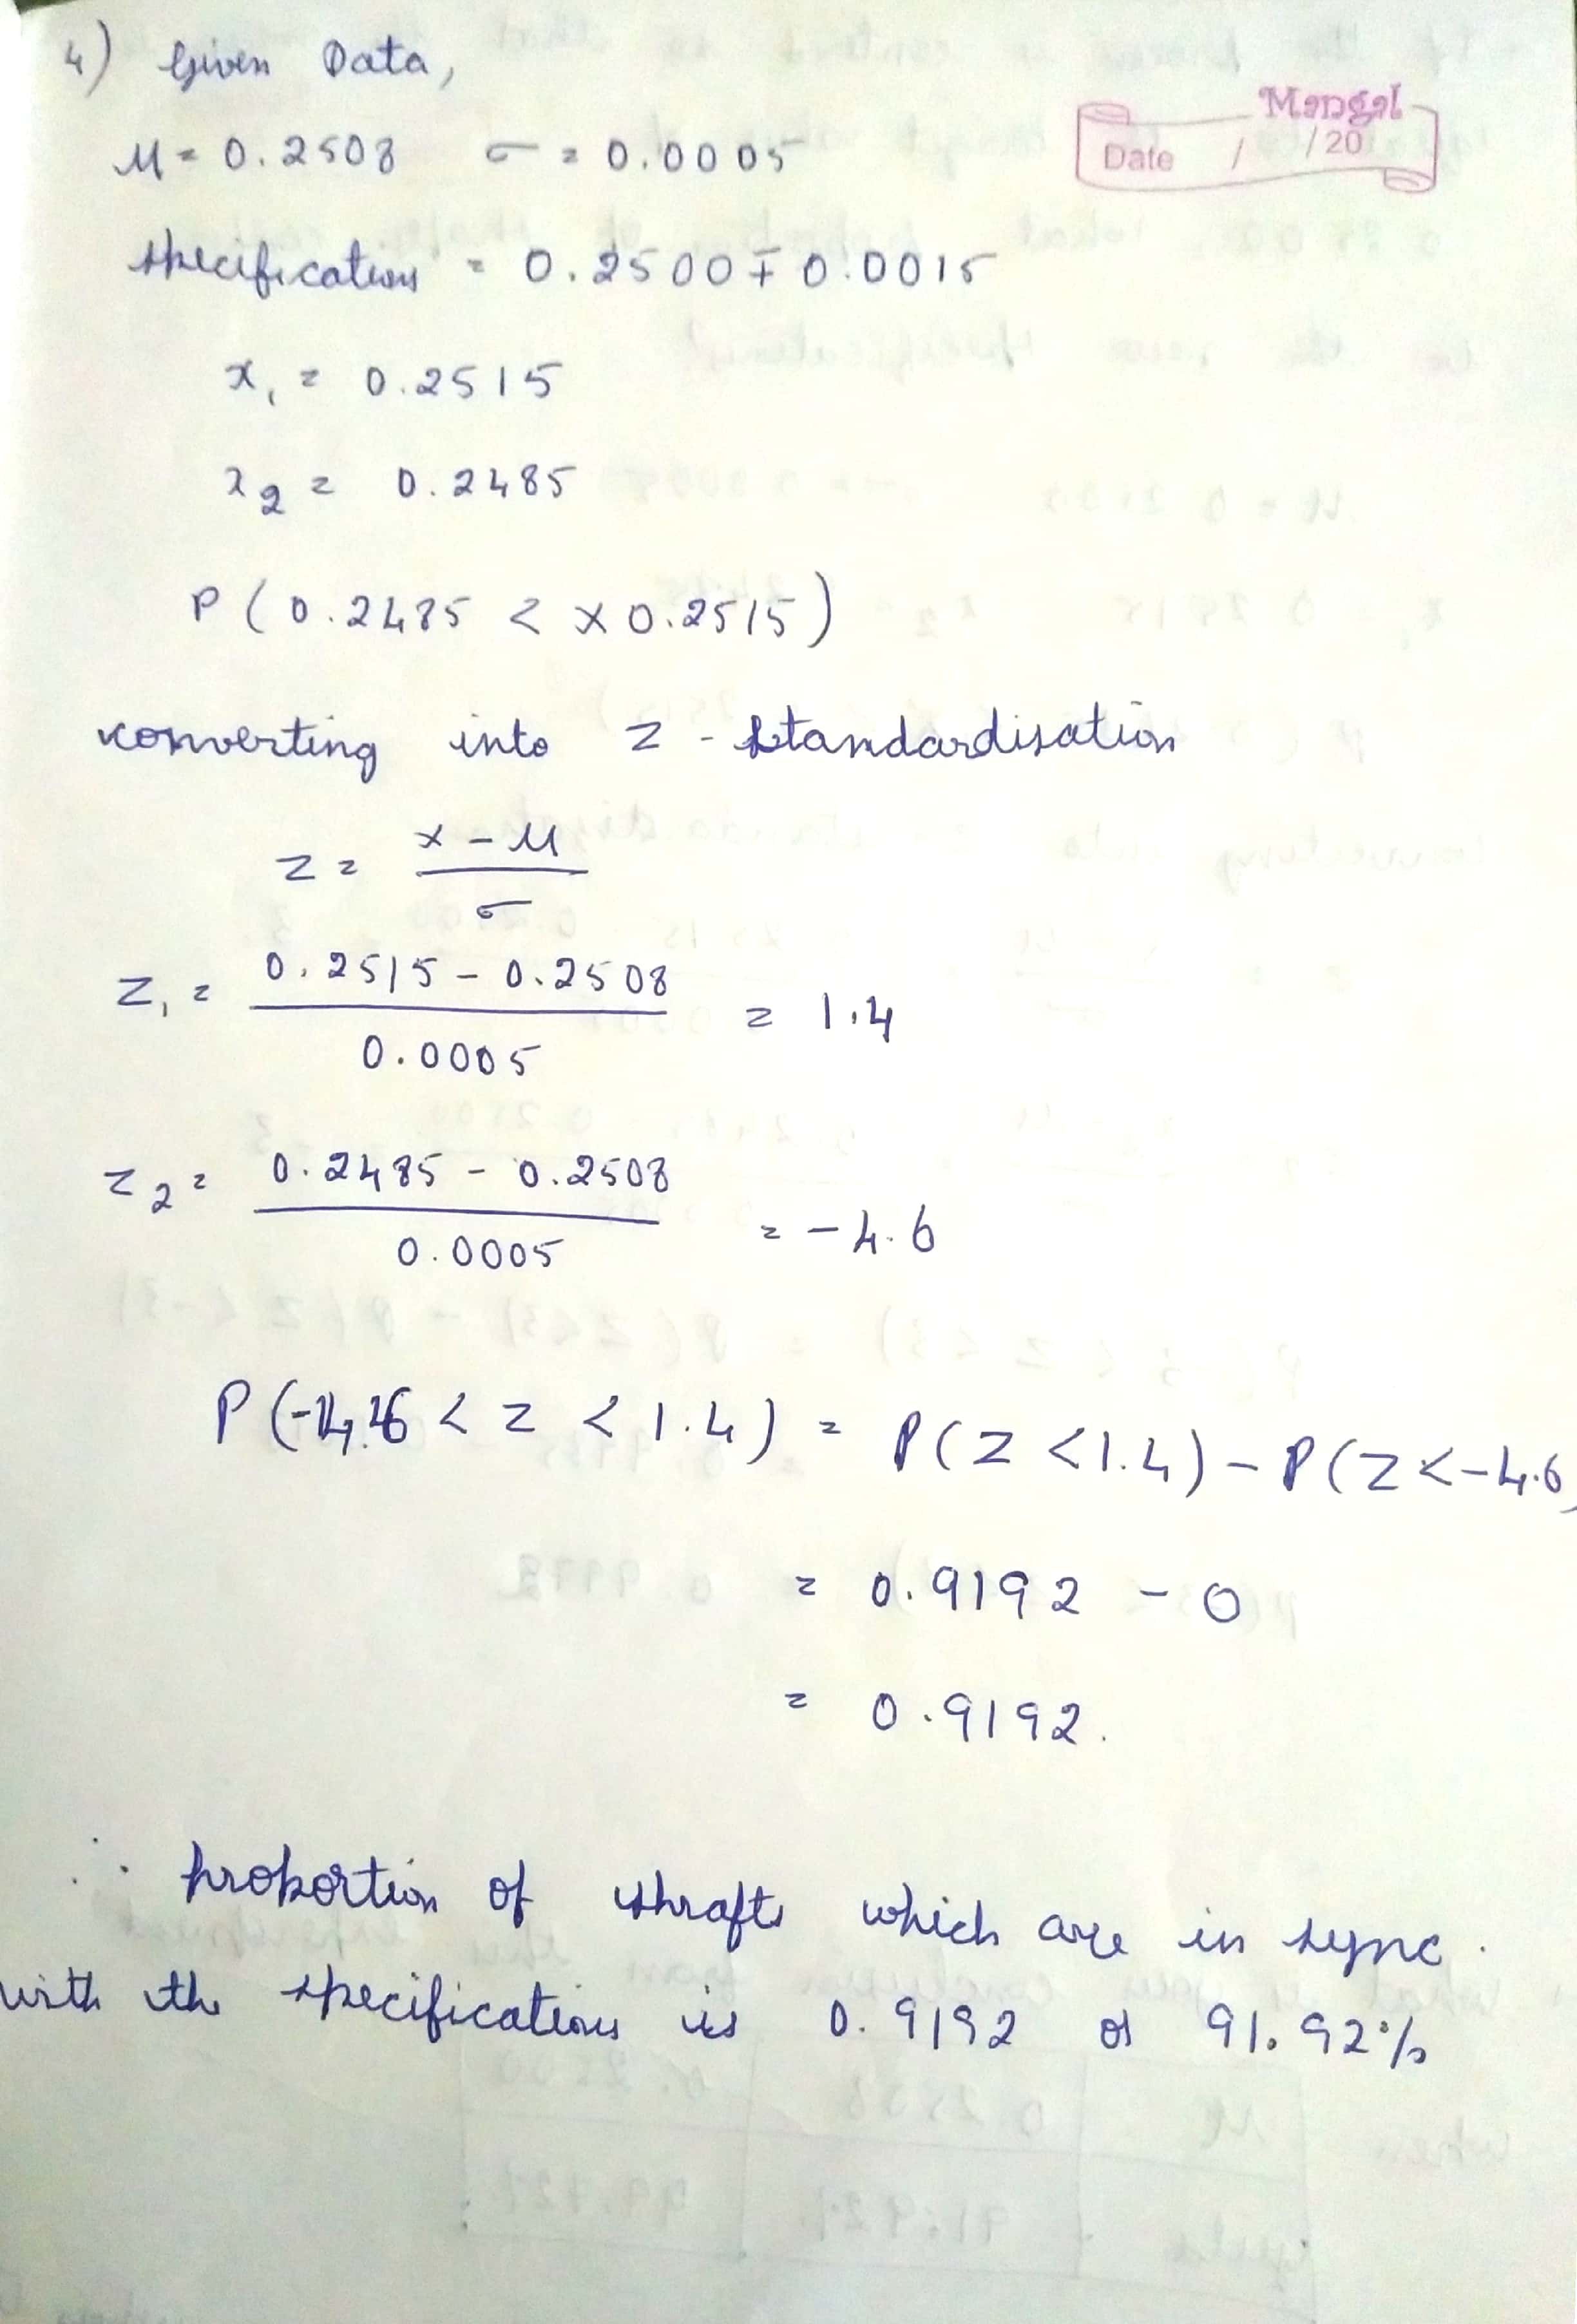 4) Given Data,
Mangal
Date / /20
μ = 0.2508 σ = 0.0005
specification = 0.2500 ∓ 0.0015
x₁ = 0.2515
x₂ = 0.2485
P ( 0.2485 < x 0.2515 )
converting into z - standardisation
z = (x - μ) / σ
z₁ = (0.2515 - 0.2508) / 0.0005 = 1.4
z₂ = (0.2485 - 0.2508) / 0.0005 = -4.6
P (-4.6 < z < 1.4) = P(z < 1.4) - P(z < -4.6)
= 0.9192 - 0
= 0.9192.
∴ proportion of shrafts which are in sync
with the specifications is 0.9192 or 91.92%